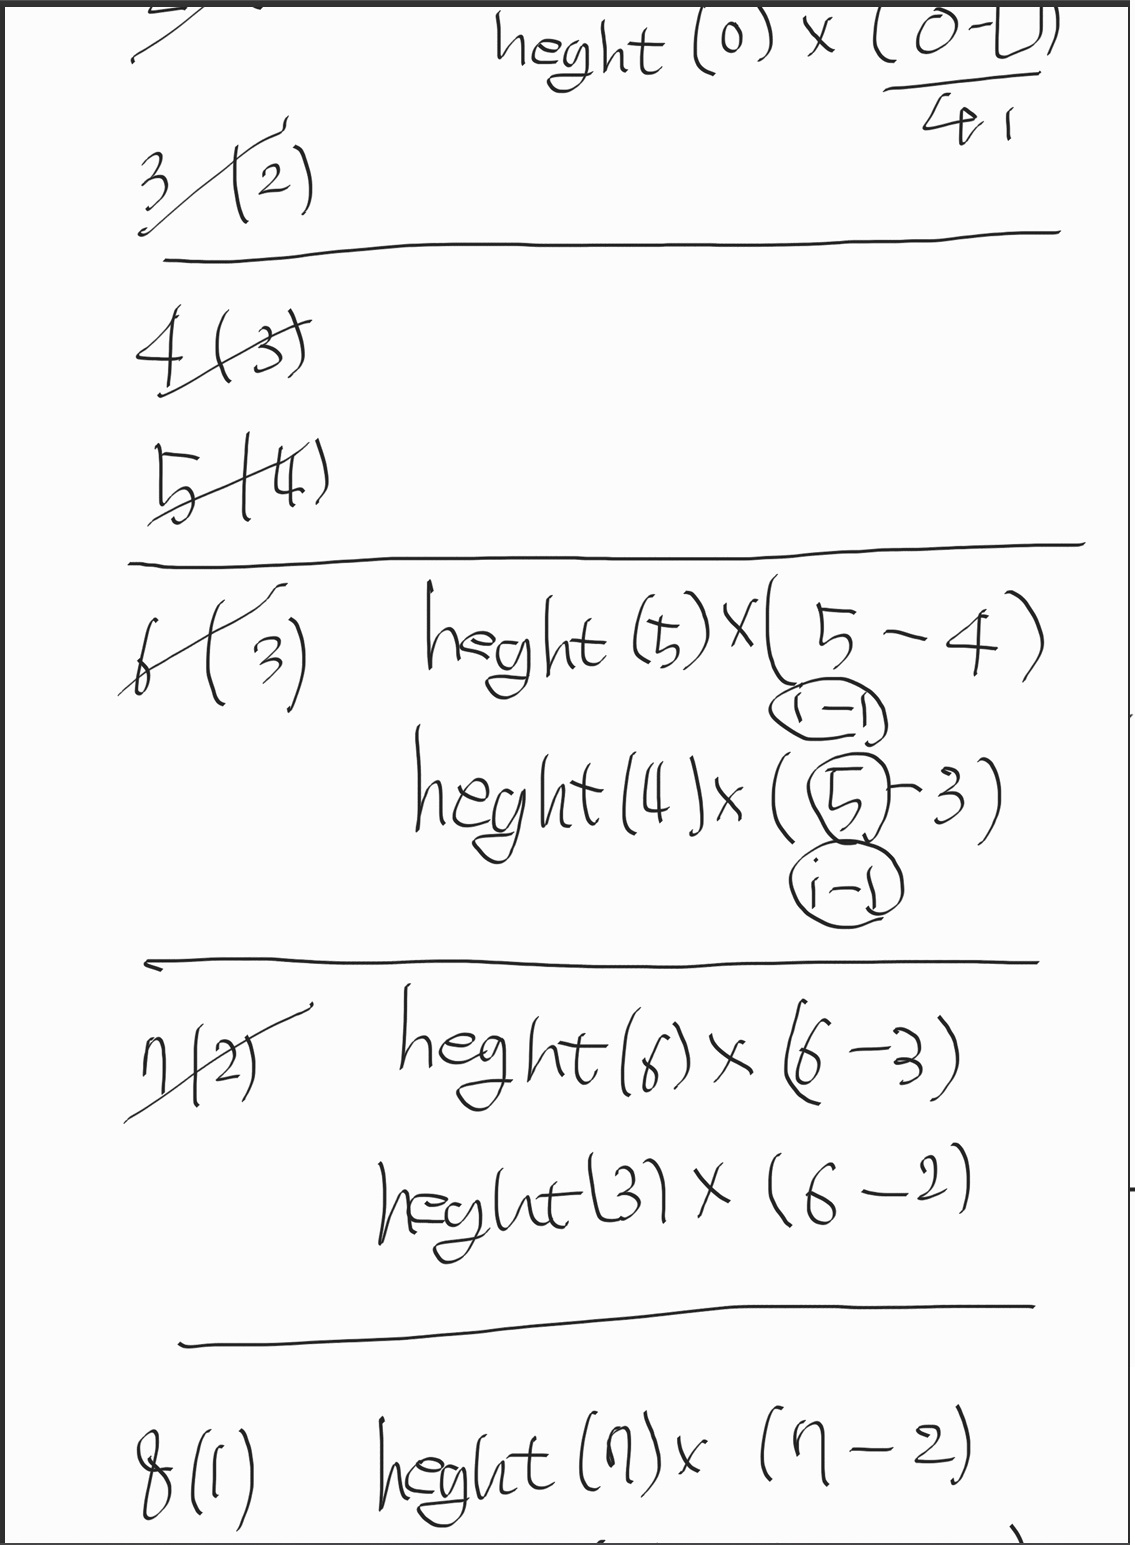 heght (0) x (0-□)
4 1
3 (2)
4 (3)
5 (4)
6 (3) heght (5) x (5 - 4)
i-1
heght (4) x (5 - 3)
i-1
7 (2) heght (6) x (6 - 3)
heght (3) x (6 - 2)
8 (1) heght (7) x (7 - 2)